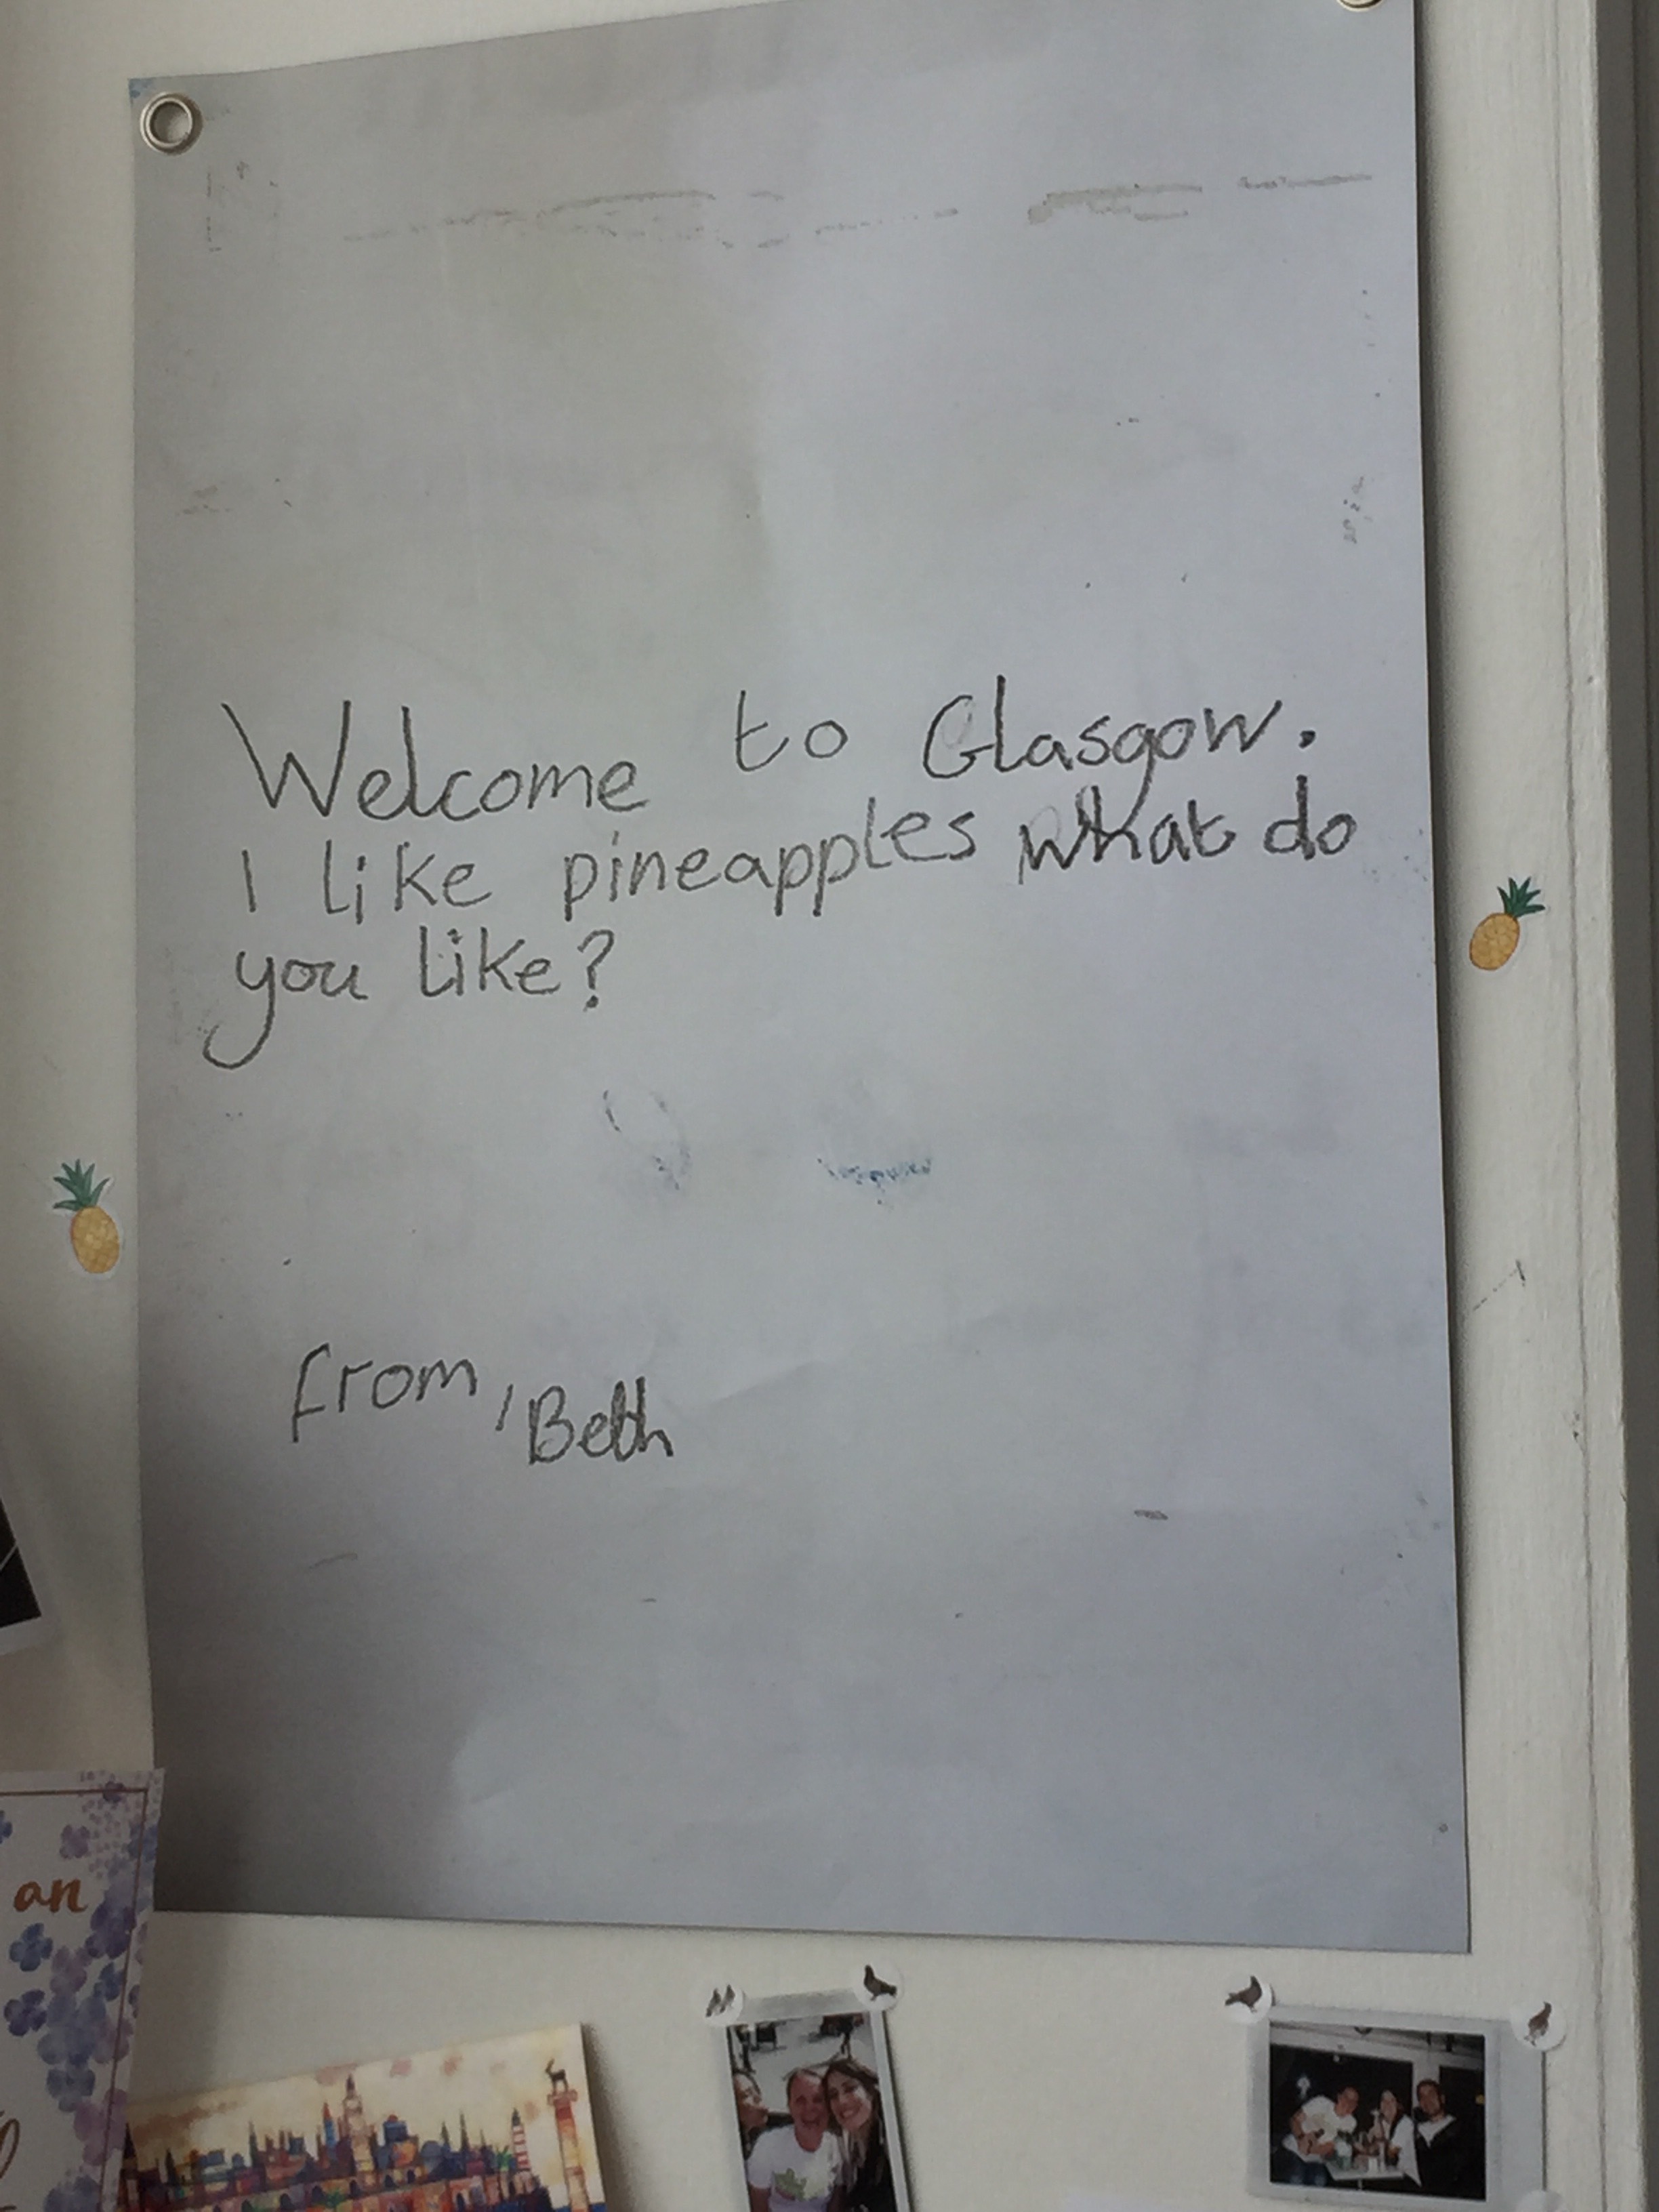 Welcome to Glasgow.
I like pineapples what do
you like?
from, Beth
an